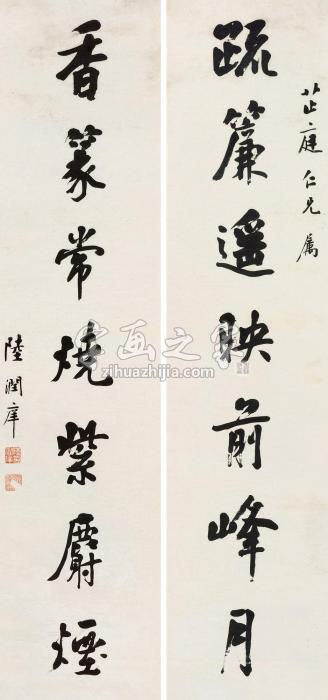 芷庭仁兄属
疏簾遥映前峰月
香篆常燒紫麝煙
陸潤庠
字画之家
zihuazhijia.com